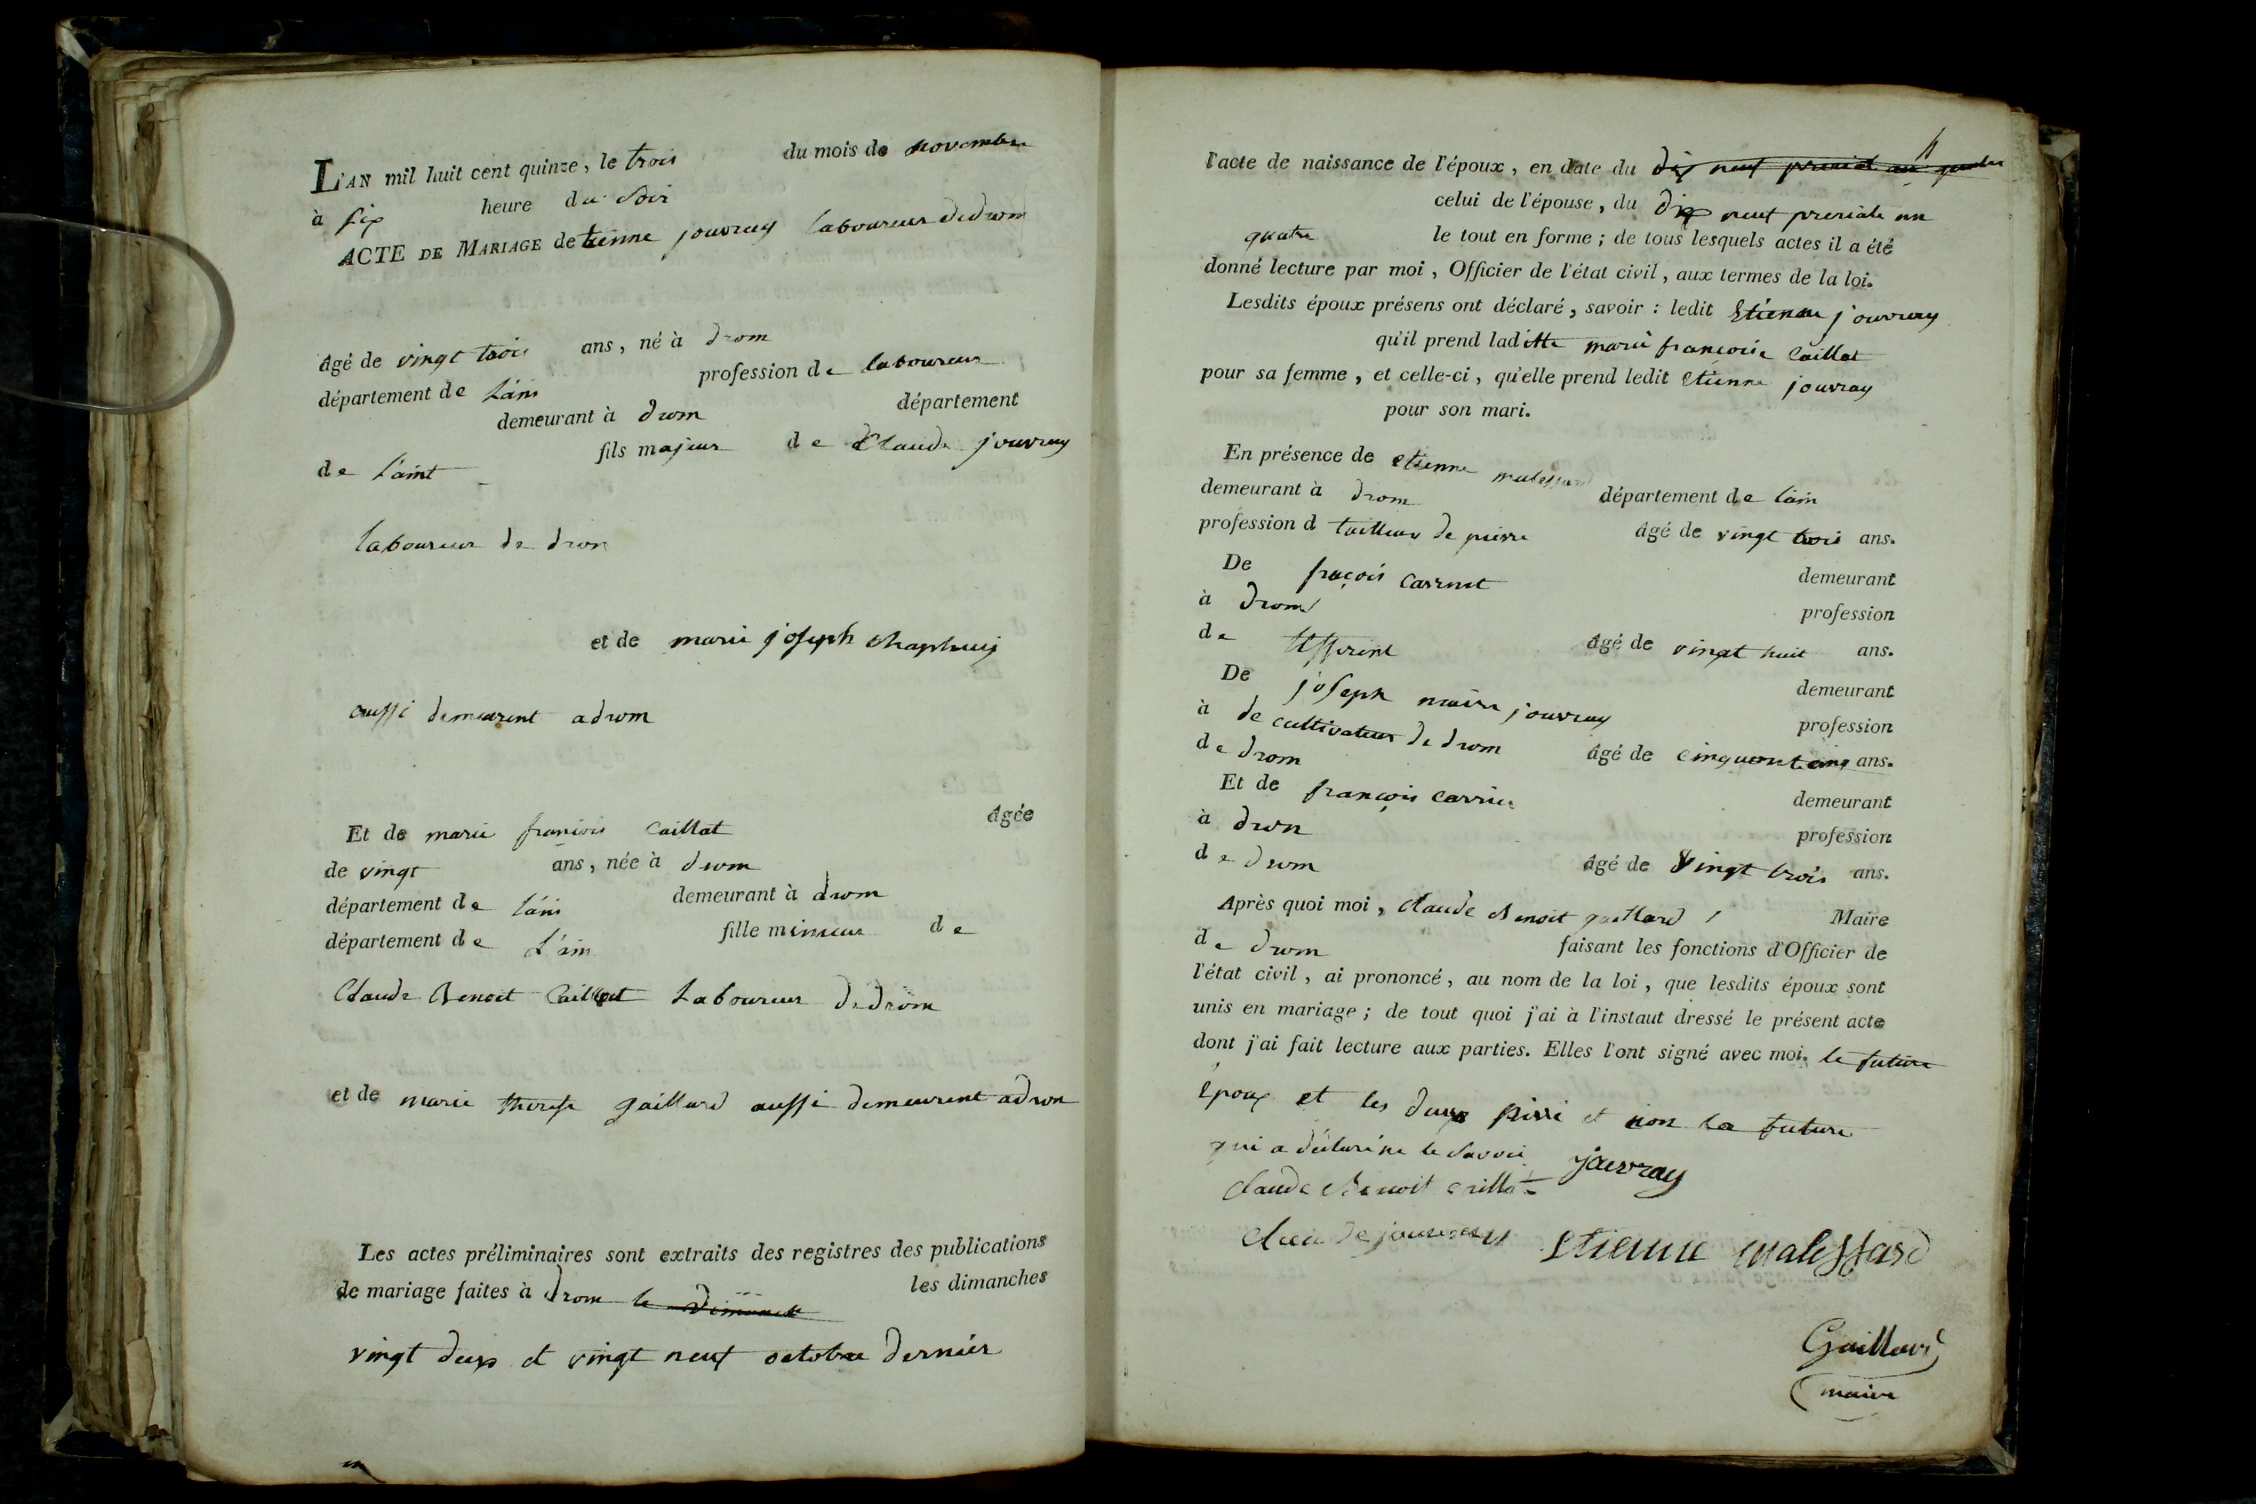 L'AN mil huit cent quinze, le trois du mois de novembre
à six heure du Soir
ACTE DE MARIAGE detienne jouvray laboureur dedrom
âgé de vingt trois ans, né à drom
département de L'ain profession de laboureur
demeurant à drom département
de L'aint fils majeur de Claude jouvray
laboureur de drom
et de marie joseph
aussi demeurent adrom
Et de marie francois Caillat âgée
de vingt ans, née à drom
département de L'ain demeurant à drom
département de L'ain fille mineur de
Claude Benoit Caillat Laboureur dedrom
et de marie therese gaillard aussi demeurent adrom
Les actes préliminaires sont extraits des registres des publications
de mariage faites à drom le dimanche les dimanches
vingt deux et vingt neuf octobre dernier
l'acte de naissance de l'époux, en date du dix neuf prerial an quatre
celui de l'épouse, du dix neuf preriale an
quatre le tout en forme; de tous lesquels actes il a été
donné lecture par moi, Officier de l'état civil, aux termes de la loi.
Lesdits époux présens ont déclaré, savoir: ledit Etienne jouvray
qu'il prend laditte marie francoise Caillat
pour sa femme, et celle-ci, qu'elle prend ledit etienne jouvray
pour son mari.
En présence de etienne malessard
demeurant à drom département de l'ain
profession d tailleur de pierre âgé de vingt trois ans.
De fraçois demeurant
à drom profession
de âgé de vingt huit ans.
De joseph marie jouvray demeurant
à de cultivateur de drom profession
de drom âgé de cinquant cinq ans.
Et de françois carrier demeurant
à dron profession
de drom âgé de Vingt trois ans.
Après quoi moi, Claude Benoit gaillard Maire
de drom faisant les fonctions d'Officier de
l'état civil, ai prononcé, au nom de la loi, que lesdits époux sont
unis en mariage; de tout quoi j'ai à l'instaut dressé le présent acte
dont j'ai fait lecture aux parties. Elles l'ont signé avec moi. le future
Epoux et les deux et non la future
qui a déclaré ne le Savoir jouvray
Claude Benoit caillat
jouvray Etienne malessard
Gaillard
maire